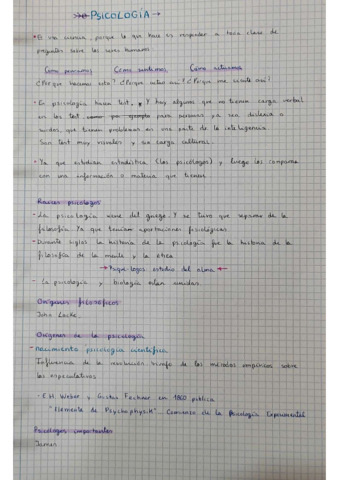 PSICOLOGÍA
• Es una ciencia, porque lo que hace es responder a toda clase de
preguntas sobre los seres humanos
Como pensamos Cómo sentimos Cómo actuamos
¿Porque hacemos esto? ¿Porque actuo así? ¿Porque me siento así?
- En psicología hacen test. Y hay algunos que no tienen carga verbal
en los test para personas ya sea dislexia o
que tienen problemas en una parte de la inteligencia
Son test muy visuales y sin carga cultural.
• Ya que estudian estadística (los psicólogos) y luego los comparan
con una información o materia que tienen
Raíces psicólogos
- La psicología viene del griego. Y se tuvo que separar de la
filosofía. Ya que tenían aportaciones fisiológicas.
• Durante siglos la historia de la psicología fue la historia de la
filosofía de la mente y la ética
Psique-logos estudio del alma
- La psicología y biología están unidas.
Orígenes filosóficos
John Locke.
Orígenes de la psicología
- nacimiento psicología científica
Influencia de la revolución triunfo de los métodos empíricos sobre
los especulativos
- E.H. Weber y Gustav Fechner em 1860 publica
"Elemente de Psychophysik". Comienzo de la Psicología Experimental
Psicólogos importantes
James